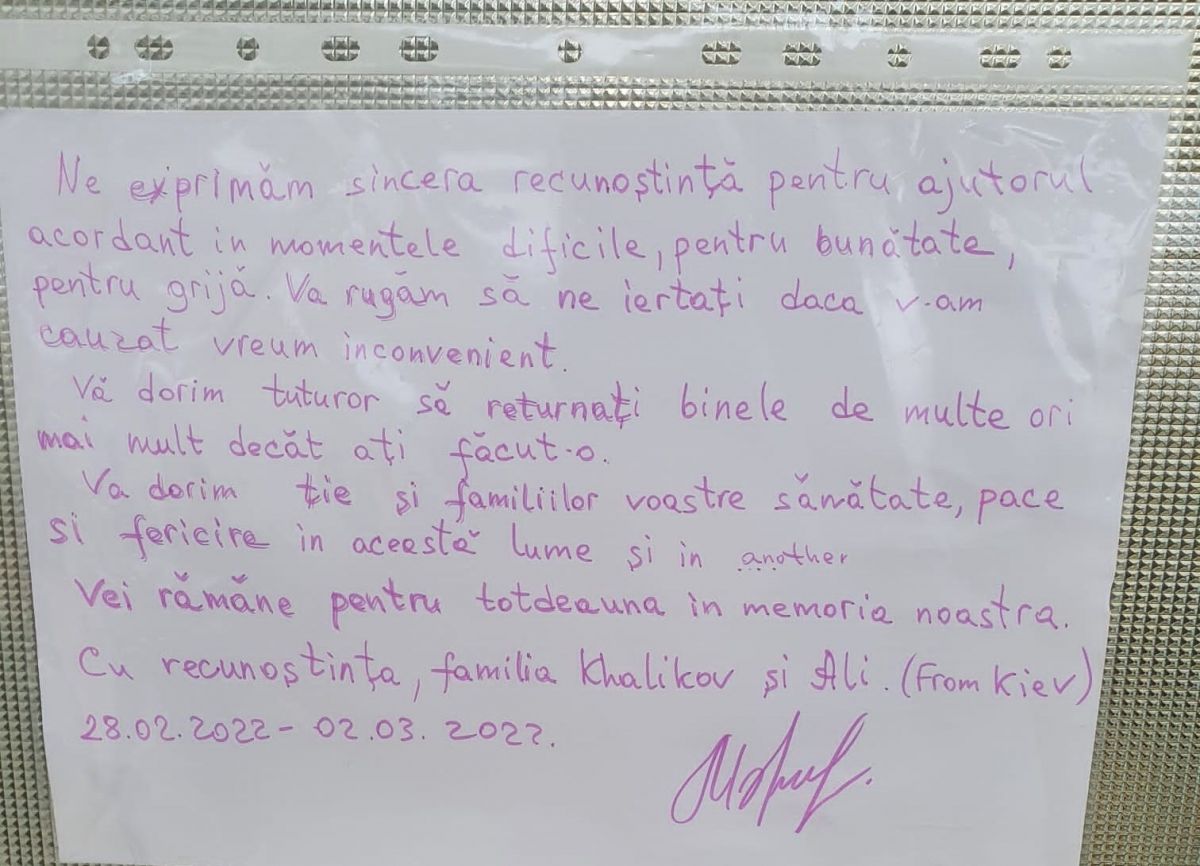 Ne exprimăm sincera recunoștință pentru ajutorul
acordant in momentele dificile, pentru bunătate,
pentru grijă. Va rugăm să ne iertați daca v-am
cauzat vreum inconvenient.
Vă dorim tuturor să returnați binele de multe ori
mai mult decăt ați făcut-o.
Va dorim ție și familiilor voastre sănătate, pace
si fericire in această lume și in another
Vei rămăne pentru totdeauna in memoria noastra.
Cu recunoștința, familia Khalikov și Ali. (From Kiev)
28.02.2022 - 02.03.2022.